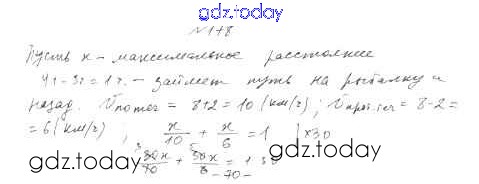 gdz.today
№178
Пусть x - максимальное расстояние
4ч - 3ч = 1ч. - займет путь на рыбалку и
назад. Vпо теч = 8+2 = 10 (км/ч); Vпр. теч = 8-2=
=6 (км/ч) ; x/10 + x/6 = 1 |x30
gdz.today 30x/10 + 30x/6 = 1 30 gdz.today
-70-